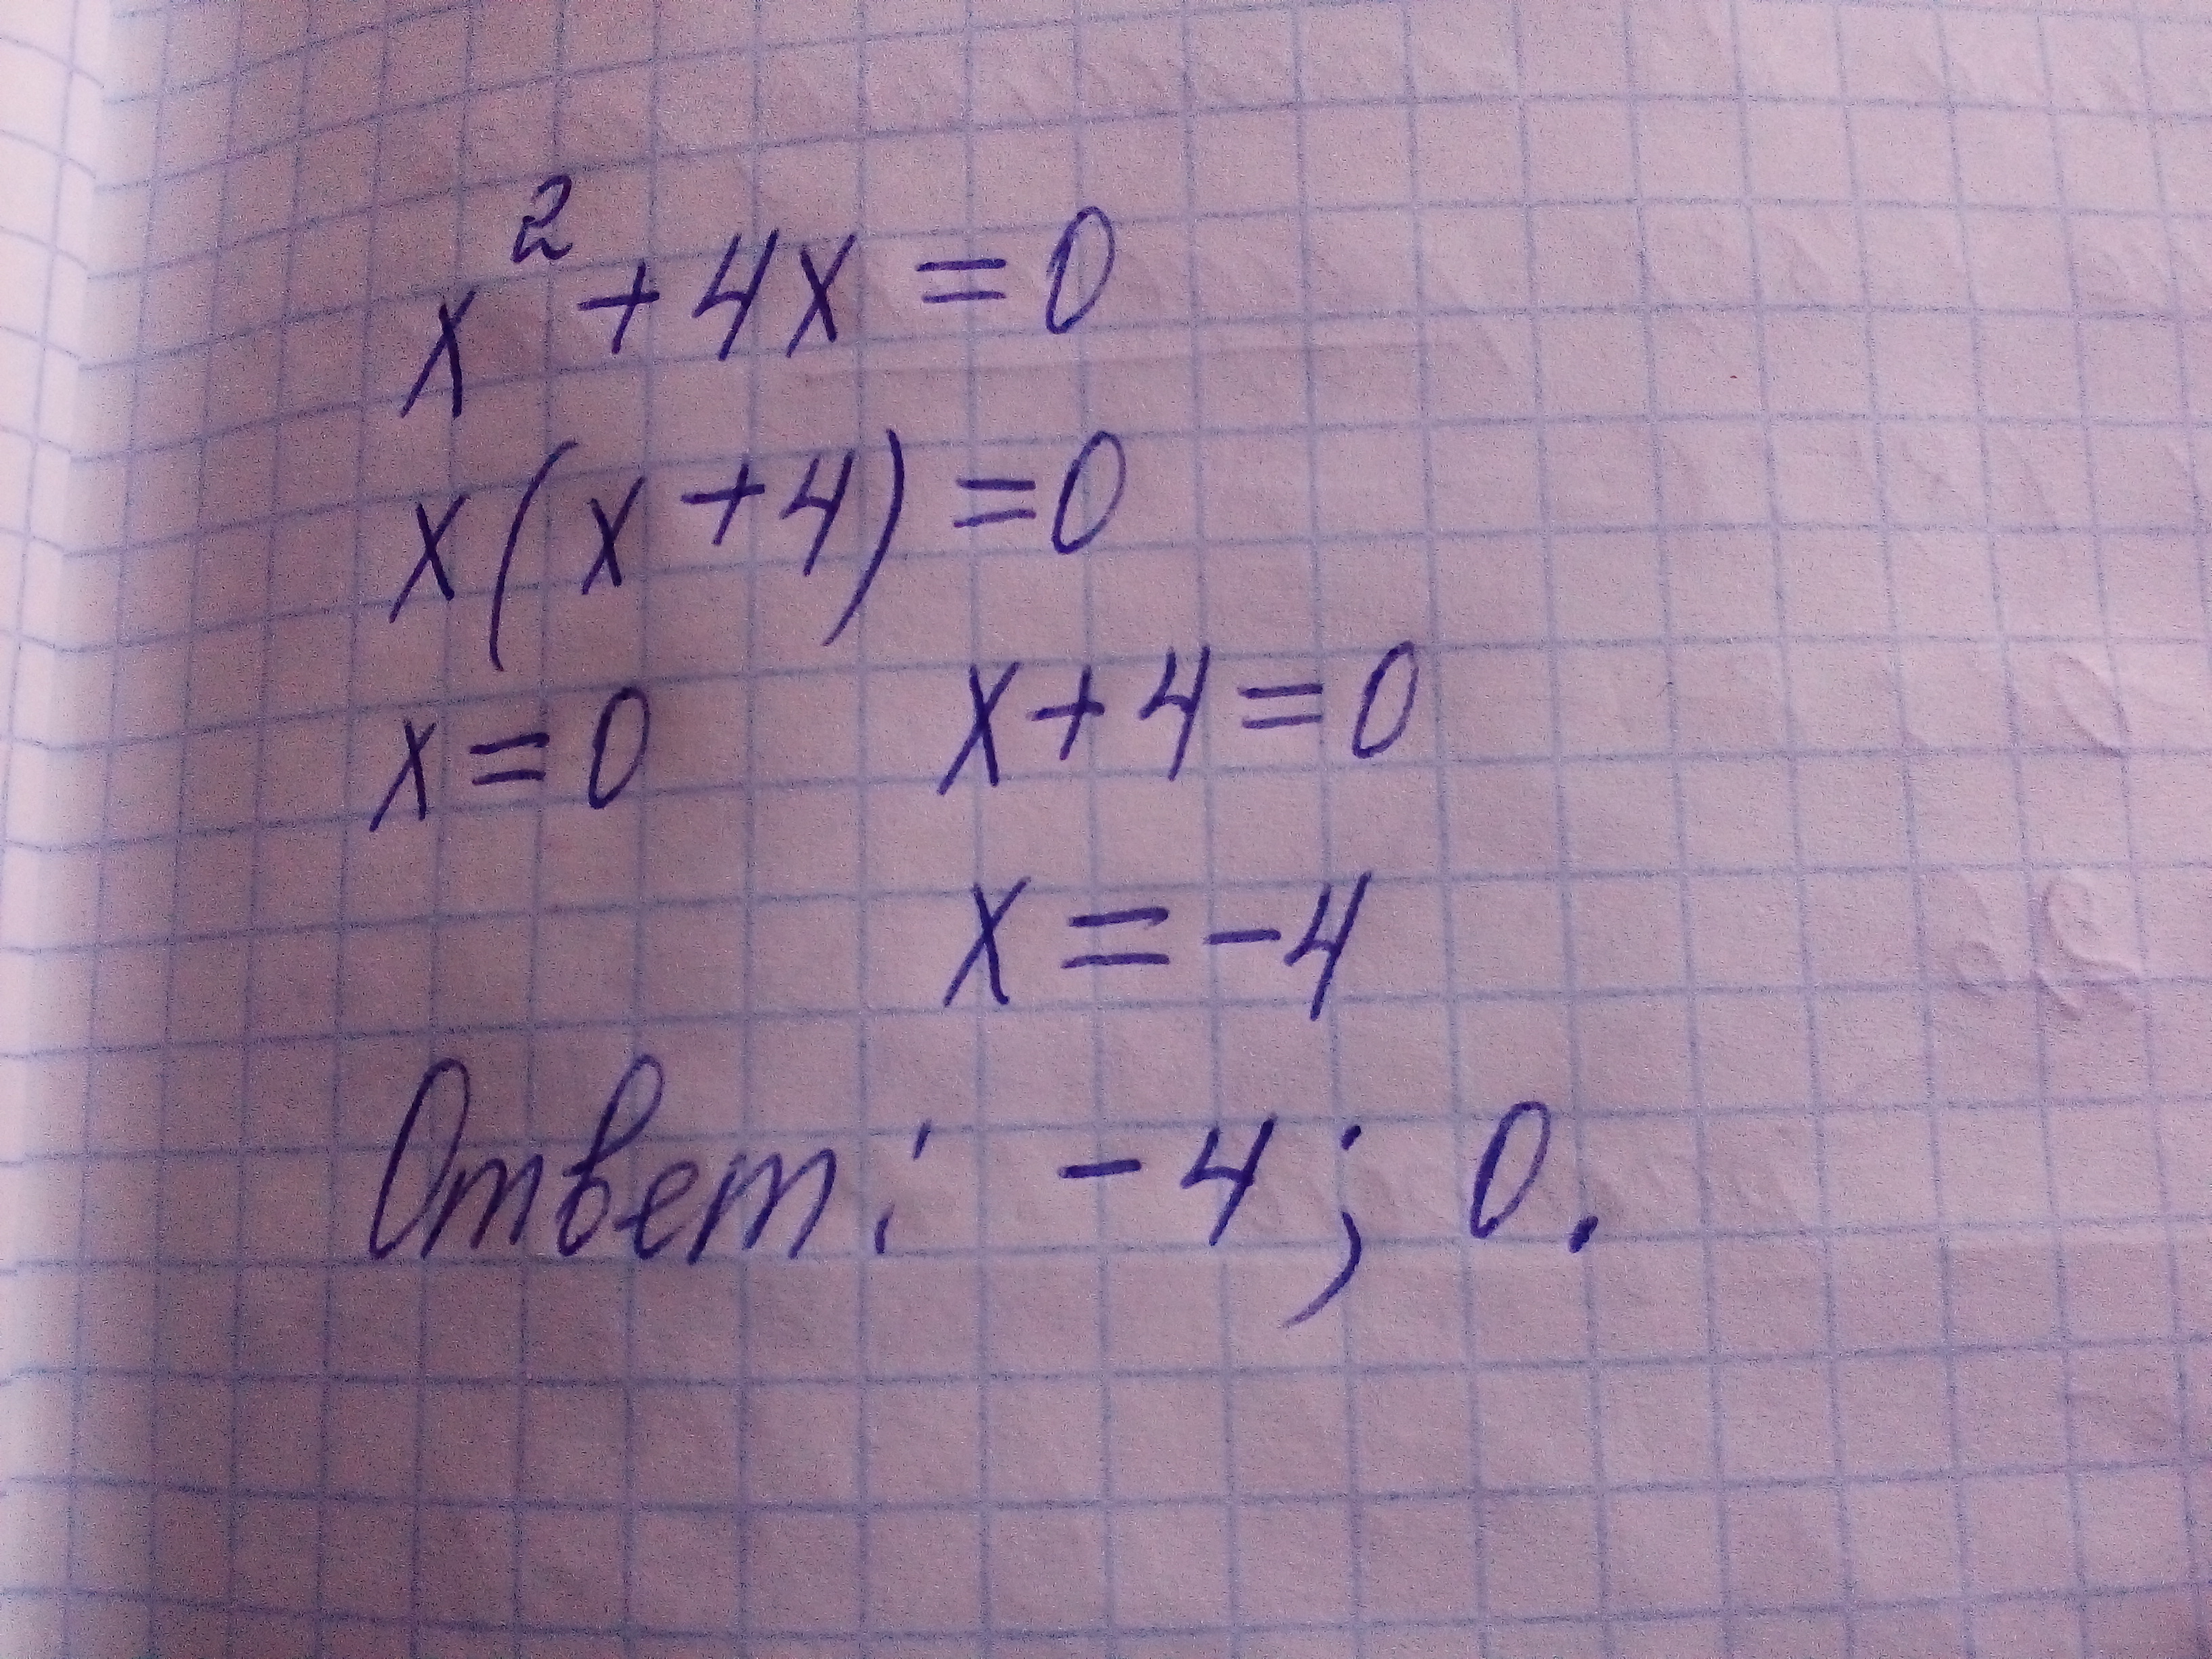 x² + 4x = 0
x(x + 4) = 0
x = 0    x + 4 = 0
x = -4
Ответ: -4; 0.